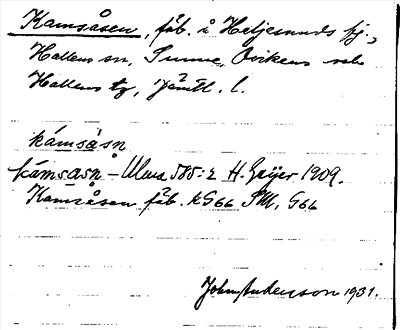 Kamsåsen, fäb. i Heljesunds fj.,
Hallens sn, Sunne, Ovikens och
Hallens tg, Jämtl. l.
kámsåsn
kámsåsn – Ulma 585:2 H. Geijer 1909.
Kamsåsen fäb. kG66 SM, G66
John Andersson 1931.